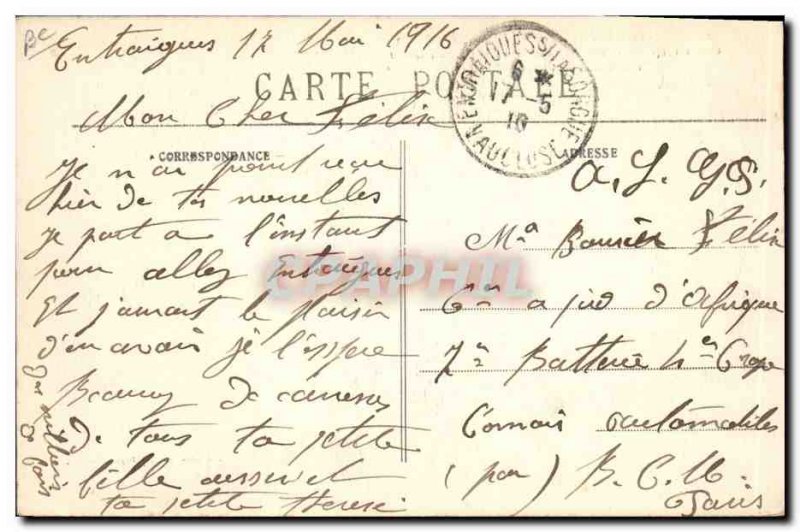 Entraigues 17 Mai 1916
CARTE POSTALE
Mon Cher Félix
CORRESPONDANCE
Je n'ai point reçu
hier de tes nouvelles
je part a l'instant
pour aller Entraigues
Et j'aurait le plaisir
d'en avoir je l'espère
De tous ta petite
fille aussi et
ta petite Therese
des milliers
de fois
ENTRAIGUES S/LA SORGUE
6 *
17 - 5
16
VAUCLUSE
ADRESSE
Félix
6me d'Afrique
7me Batterie 4e Group
automobiles
(par) B. C. M.
Paris
CPAPHIL